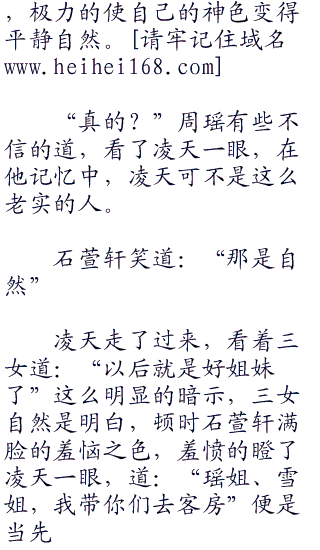 ，极力的使自己的神色变得
平静自然。[请牢记住域名
www.heihei168.com]
“真的？”周瑶有些不
信的道，看了凌天一眼，在
他记忆中，凌天可不是这么
老实的人。
石萱轩笑道：“那是自
然”
凌天走了过来，看着三
女道：“以后就是好姐妹
了”这么明显的暗示，三女
自然是明白，顷时石萱轩满
脸的羞恼之色，羞愤的瞪了
凌天一眼，道：“瑶姐、雪
姐，我带你们去客房”便是
当先